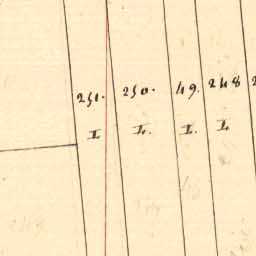 251. 250. 49. 248 2
I I. I. I.